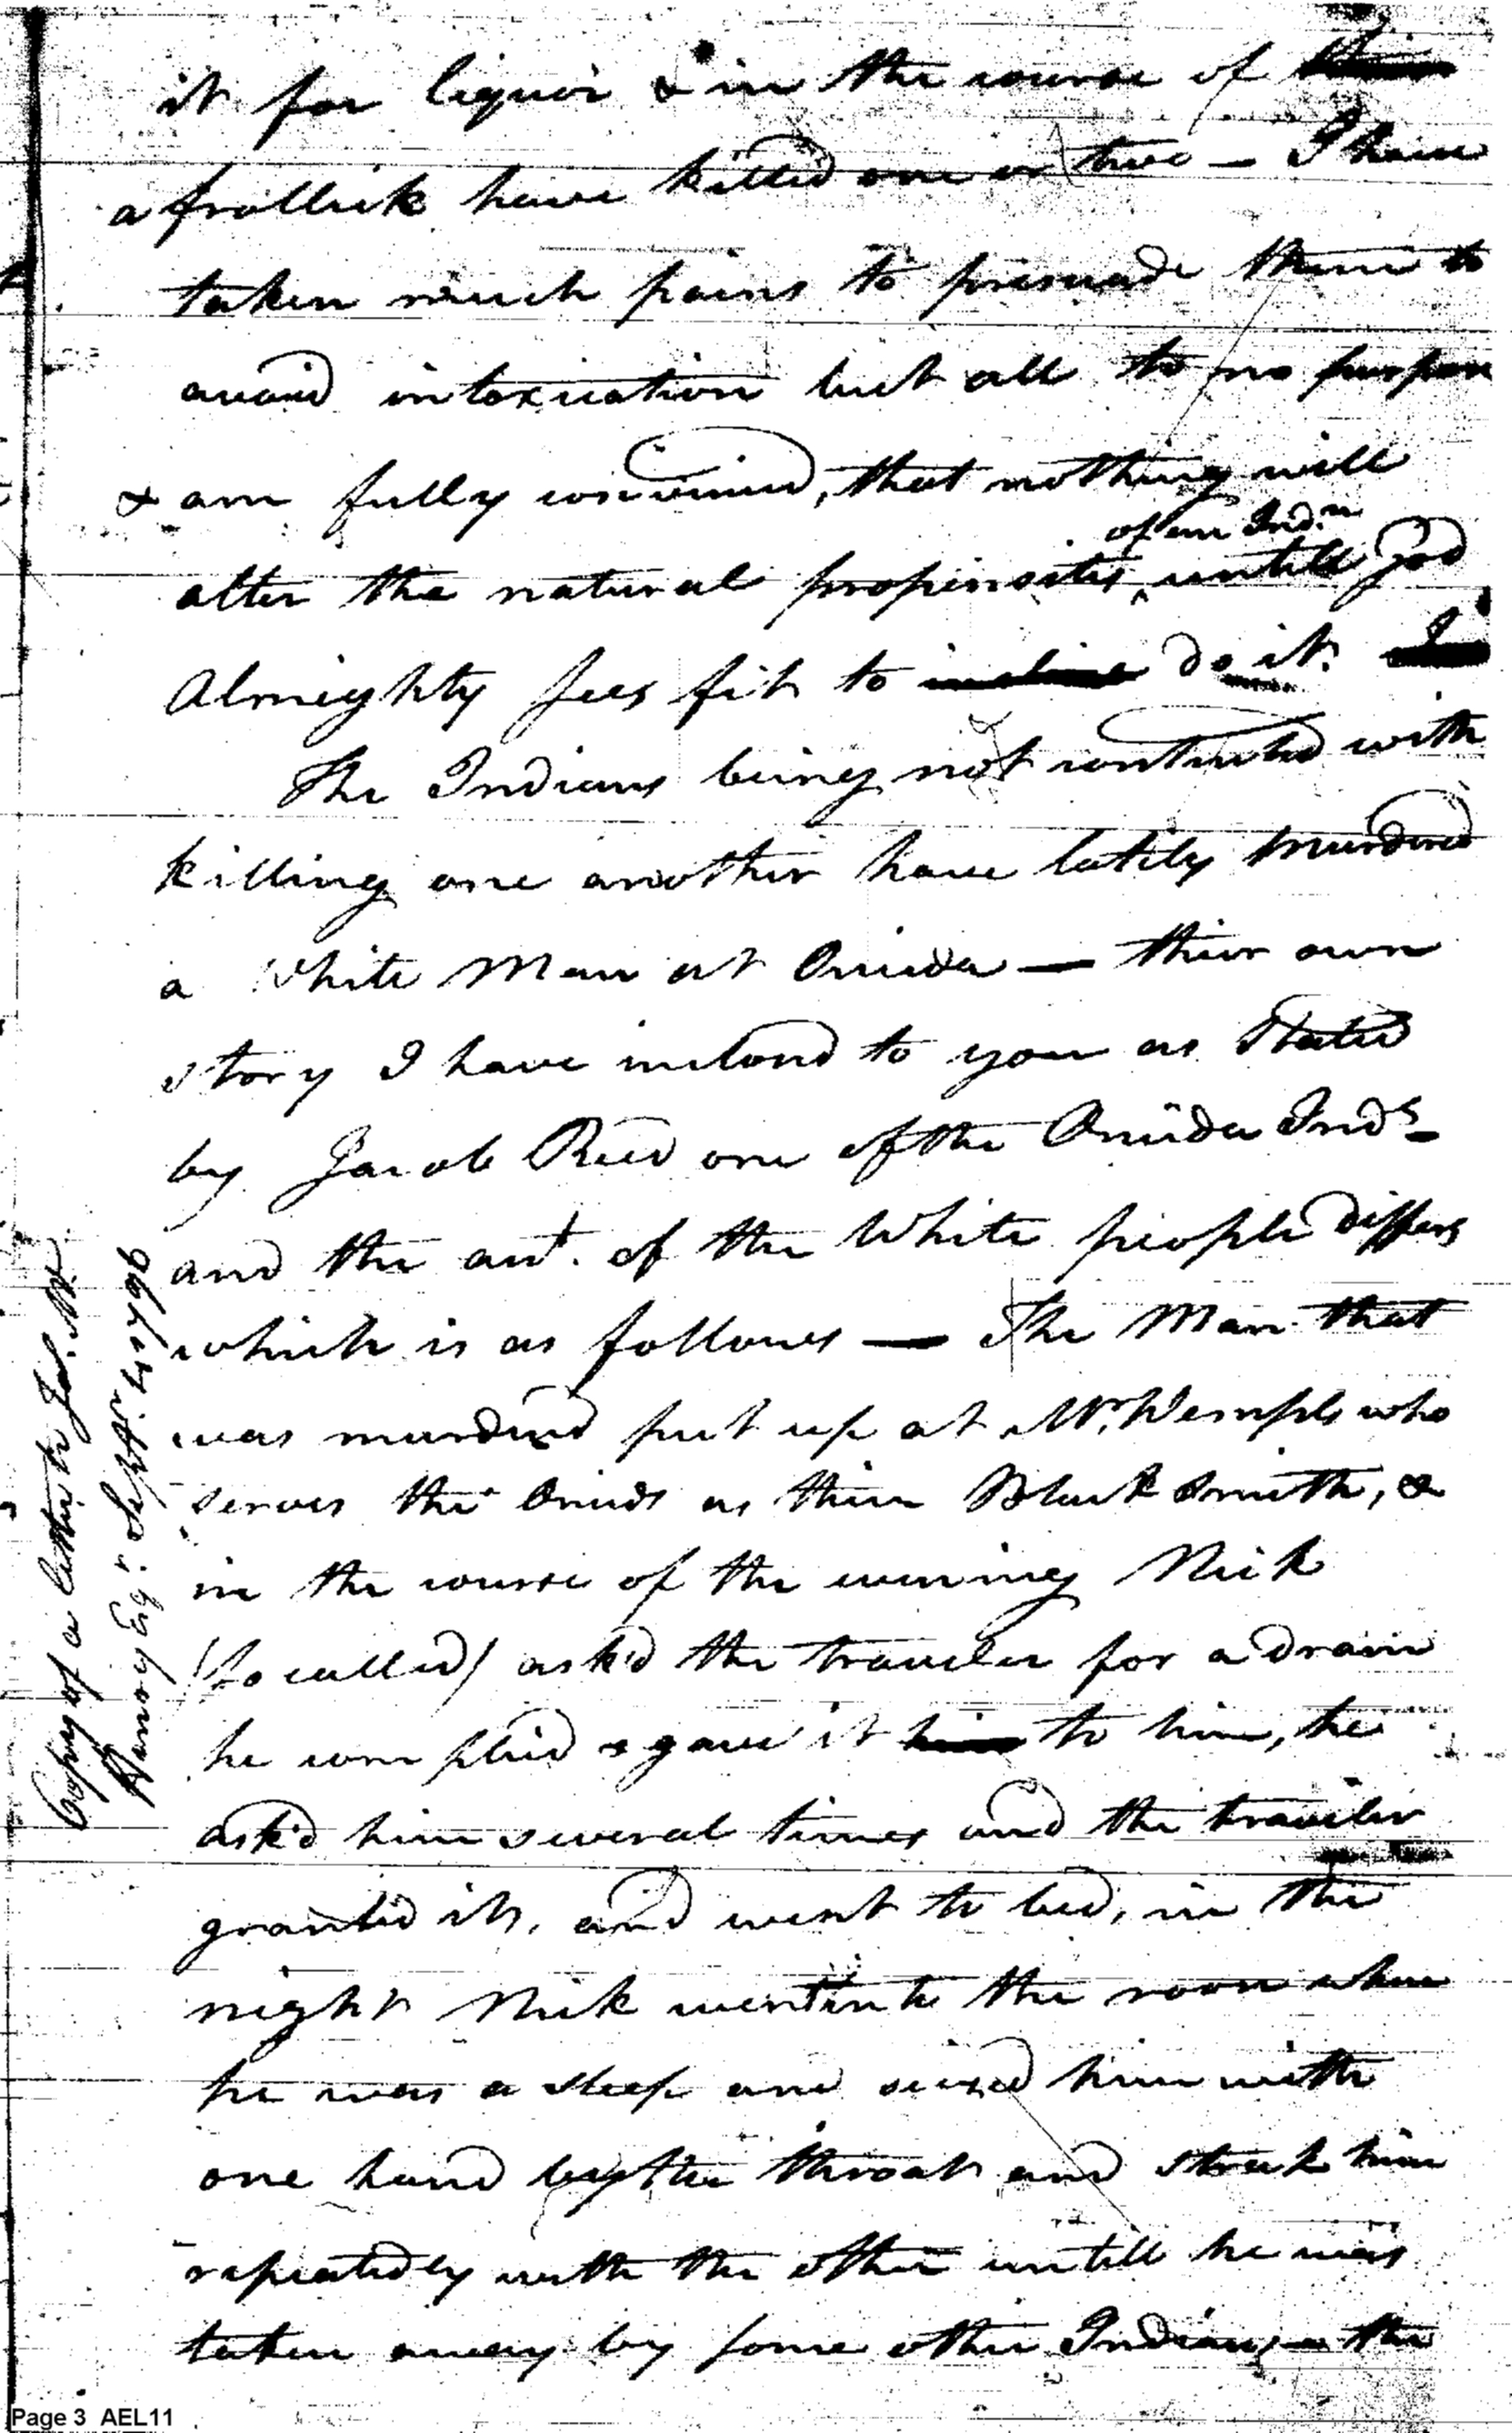 it for liquor & in the course of
a frollick have killed one or two — I have
taken much pains to presuade them to
avoid intoxication but all to no purpose
& am fully convinced, that nothing will
of an Indn
alter the natural propensity untill god
Almighty sees fit to incline do it.
The Indians being not contented with
killing one another have lately murdered
a White Man at Oneida — their own
story I have inclosd to you as Stated
by Jacob Reed one of the Oneida Inds
and the acct. of the White people differs
which is as follows — The Man that
was murdered put up at Mr. Wemple who
serves the Oneids as their Black Smith, &
in the course of the evening Nick
(so called) ask'd the traveler for a dram
he complied & gave it him to him, he
ask'd him several times and the traveler
granted it, and went to bed, in the
night Nick went into the room where
he was a sleep and seized him with
one hand by the throat and struk him
repeatedly with the other untill he was
taken away by some other Indians — the
Copy of a letter to Jas. Mc.
Henry Esqr. Septr. 4 1796
Page 3 AEL11